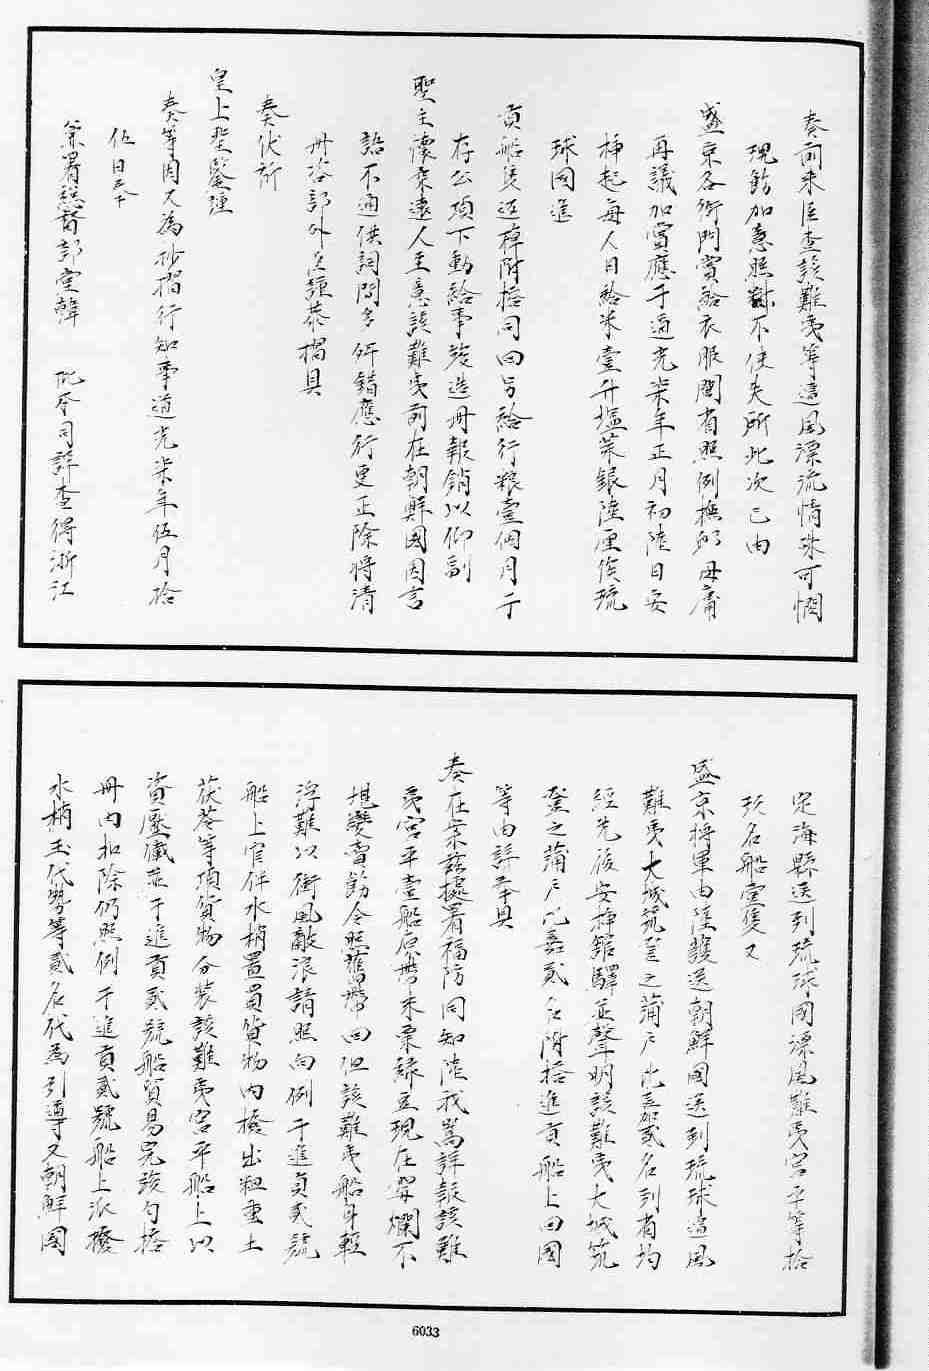 奏前來臣查該難夷等遭風漂流情殊可憫
現飭加意照料不使失所此次已由
盛京各衙門賞給衣服閩省照例撫卹毋庸
再議加賞應于道光柒年正月初陸日安
插起每人日給米壹升塩菜銀陸厘俟琉
球國進
貢船隻返棹附搭同回另給行粮壹個月于
存公項下動給事竣造冊報銷以仰副
聖主懷柔遠人至意該難夷前在朝鮮國因言
語不通供詞間多舛錯應行更正除將清
冊咨部外臣謹恭摺具
奏伏祈
皇上聖鑒謹
奏等因又為抄摺行知事道光柒年伍月拾
伍日奉
兼署總督部堂韓 批本司詳查得浙江
定海縣送到琉球國漂風難夷宮平等拾
玖名船壹隻又
盛京將軍由陸護送朝鮮國送到琉球遭風
難夷大城筑登之蒲戶比嘉貳名到省均
經先後安插館驛並聲明該難夷大城筑
登之蒲戶比嘉貳名附搭進貢船上回國
等由詳奉具
奏在案茲據署福防同知陸我嵩詳報該難
夷宮平壹船原帶米粟綠豆現在霉爛不
堪變賣飭令照舊帶回但該難夷船身輕
浮難以衝風敵浪請照向例于進貢貳號
船上官伴水梢置買貨物內撥出粗重土
茯苓等項貨物分裝該難夷宮平船上以
資壓儎並于進貢貳號船貿易完竣勻撥
冊內扣除仍照例于進貢貳號船上派撥
水梢玉代勢等貳名代為引導又朝鮮國
6033